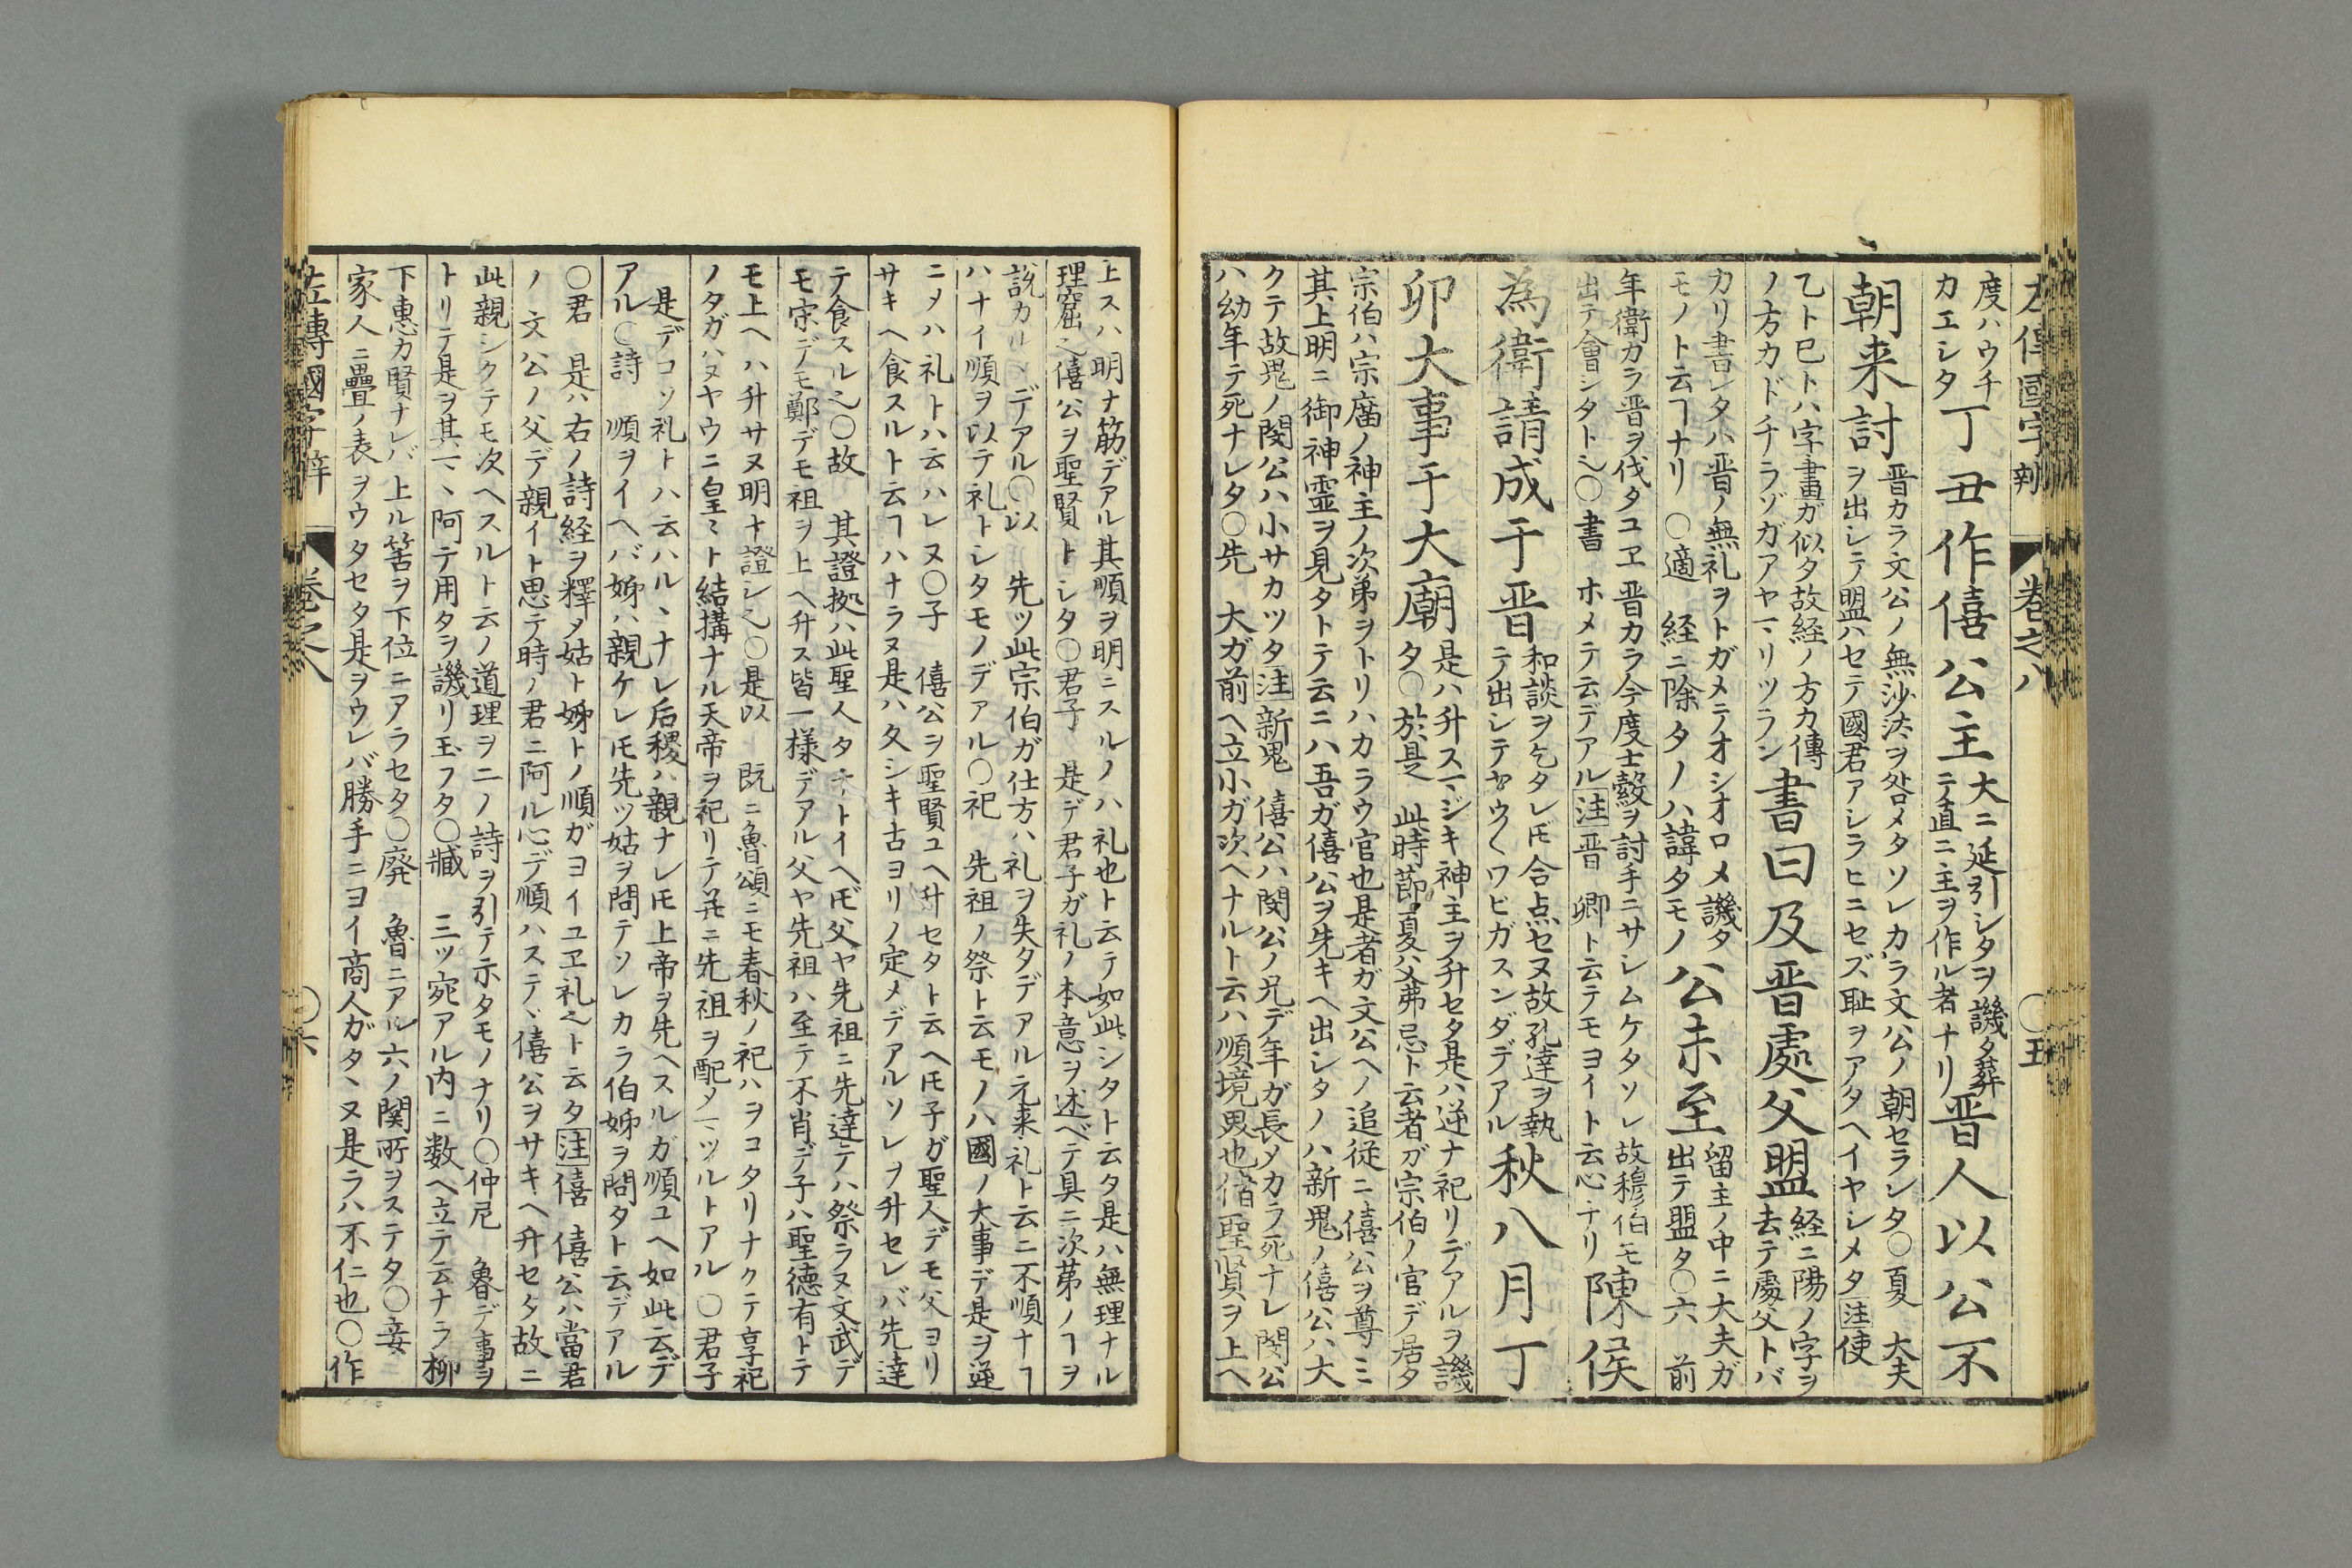 左傳國字辨 巻之八 〇五
度ハウチ
カエシタ
丁丑作僖公主
大ニ延引シタヲ譏タ葬
テ直ニ主ヲ作ル者ナリ
晋人以公不
朝来討
晋カラ文公ノ無沙汰ヲ咎メタソレカラ文公ノ朝セラレタ〇夏 大夫
ヲ出シテ盟ハセテ國君アシラヒニセズ耻ヲアタヘイヤシメタ注使
乙ト巳トハ字畫ガ似タ故経ノ方カ傳
ノ方カドチラゾガアヤマリツラン
書曰及晋處父盟
経ニ陽ノ字ヲ
去テ處父トバ
カリ書シタハ晋ノ無礼ヲトガメテオシオロメ譏タ
モノト云ヿナリ 〇適 経ニ除タノハ諱タモノ
公未至
留主ノ中ニ大夫ガ
出テ盟タ〇六 前
年衛カラ晋ヲ伐タユヱ晋カラ今度士縠ヲ討手ニサレムケタソレ故穆伯モ
出テ會シタト也〇書 ホメテ云デアル注晋 卿ト云テモヨイト云心ナリ
陳侯
為衛請成于晋
和談ヲ乞タレ𪜈合点セヌ故孔達ヲ執
テ出シテヤウ〱ワビガスンダデアル
秋八月丁
卯大事于大廟
是ハ升スマジキ神主ヲ升セタ是ハ逆ナ祀リデアルヲ譏
タ〇於是 此時節夏父弗忌ト云者ガ宗伯ノ官デ居タ
宗伯ハ宗廟ノ神主ノ次第ヲトリハカラウ官也是者ガ文公ヘノ追従ニ僖公ヲ尊ミ
其上明ニ御神霊ヲ見タトテ云ニハ吾ガ僖公ヲ先キヘ出シタノハ新鬼ノ僖公ハ大
クテ故鬼ノ閔公ハ小サカツタ注新鬼 僖公ハ閔公ノ兄デ年ガ長メカラ死ナレ閔公
ハ幼年テ死ナレタ〇先 大ガ前ヘ立小ガ次ヘナルト云ハ順境異也偕聖賢ヲ上ヘ
上スハ明ナ筋デアル其順ヲ明ニスルノハ礼也ト云テ如此シタト云タ是ハ無理ナル
理窟也僖公ヲ聖賢トシタ〇君子 是デ君子ガ礼ノ本意ヲ述ベテ具ニ次第ノヿヲ
説カルヽデアル〇以 先ツ此宗伯ガ仕方ハ礼ヲ失タデアル元来礼ト云ニ不順ナヿ
ハナイ順ヲ以テ礼トシタモノデアル〇祀 先祖ノ祭ト云モノハ國ノ大事デ是ヲ逆
ニメハ礼トハ云ハレヌ〇子 僖公ヲ聖賢ユヘ升セタト云ヘ𪜈子ガ聖人デモ父ヨリ
サキヘ食スルト云ヿハナラヌ是ハ久シキ古ヨリノ定メデアルソレヲ升セレバ先達
テ食スル也〇故 其證拠ハ此聖人タチトイヘ𪜈父ヤ先祖ニ先達テハ祭ラヌ文武デ
モ宋デモ鄭デモ祖ヲ上ヘ升ス皆一様デアル父ヤ先祖ハ至テ不肖デ子ハ聖徳有トテ
モ上ヘハ升サヌ明ナ證シ也〇是以 既ニ魯頌ニモ春秋ノ祀ハヲコタリナクテ享祀
ノタガハヌヤウニ皇ミト結搆ナル天帝ヲ祀リテ并ニ先祖ヲ配メマツルトアル 〇君子
是デコソ礼トハ云ハルヽナレ后稷ハ親ナレ𪜈上帝ヲ先ヘスルガ順ユヘ如此云デ
アル〇詩 順ヲイヘバ姊ハ親ケレ𪜈先ツ姑ヲ問テソレカラ伯姊ヲ問タト云デアル
〇君 是ハ右ノ詩経ヲ釋メ姑ト姊トノ順ガヨイユヱ礼也ト云タ注僖 僖公ハ當君
ノ文公ノ父デ親イト思テ時ノ君ニ阿ル心デ順ハステヽ僖公ヲサキヘ升セタ故ニ
此親シクテモ次ヘスルト云ノ道理ヲ二ノ詩ヲ引テ示タモノナリ〇仲尼 魯デ事ヲ
トリテ是ヲ其マヽ阿テ用タヲ譏リ玉フタ〇臧 三ツ宛アル内ニ数ヘ立テ云ナラ柳
下惠カ賢ナレバ上ル筈ヲ下位ニアラセタ〇廃 魯ニアル六ノ関所ヲステタ〇妾
家人ニ疊ノ表ヲウタセタ是ヲウレバ勝手ニヨイ商人ガタヽヌ是ラハ不仁也〇作
左傳國字辨 巻之八 〇六